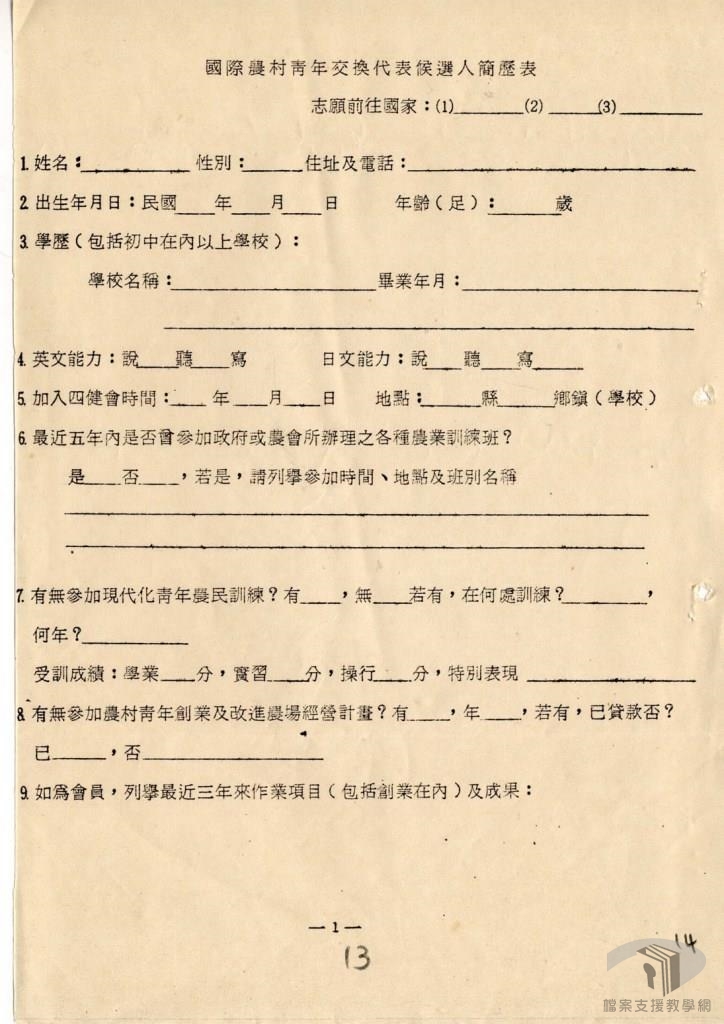 國際農村青年交換代表候選人簡歷表
志願前往國家：(1)________(2)_____(3)________
1. 姓名：__________ 性別：______住址及電話：__________________________
2. 出生年月日：民國____年____月____日　　年齡（足）：______歲
3. 學歷（包括初中在內以上學校）：
學校名稱：____________________畢業年月：______________________
________________________________________________
4. 英文能力：說____聽____寫　　日文能力：說____聽____寫_____
5. 加入四健會時間：____年____月____日　　地點：______縣______鄉鎮（學校）
6. 最近五年內是否曾參加政府或農會所辦理之各種農業訓練班？
是____否____，若是，請列舉參加時間、地點及班別名稱
________________________________________________
________________________________________________
7. 有無參加現代化青年農民訓練？有____，無____若有，在何處訓練？________，
何年？__________
受訓成績：學業____分，實習____分，操行____分，特別表現________________
8. 有無參加農村青年創業及改進農場經營計畫？有____，年____，若有，已貸款否？
已______，否__________________
9. 如為會員，列舉最近三年來作業項目（包括創業在內）及成果：
— 1 —
13
14
檔案支援教學網